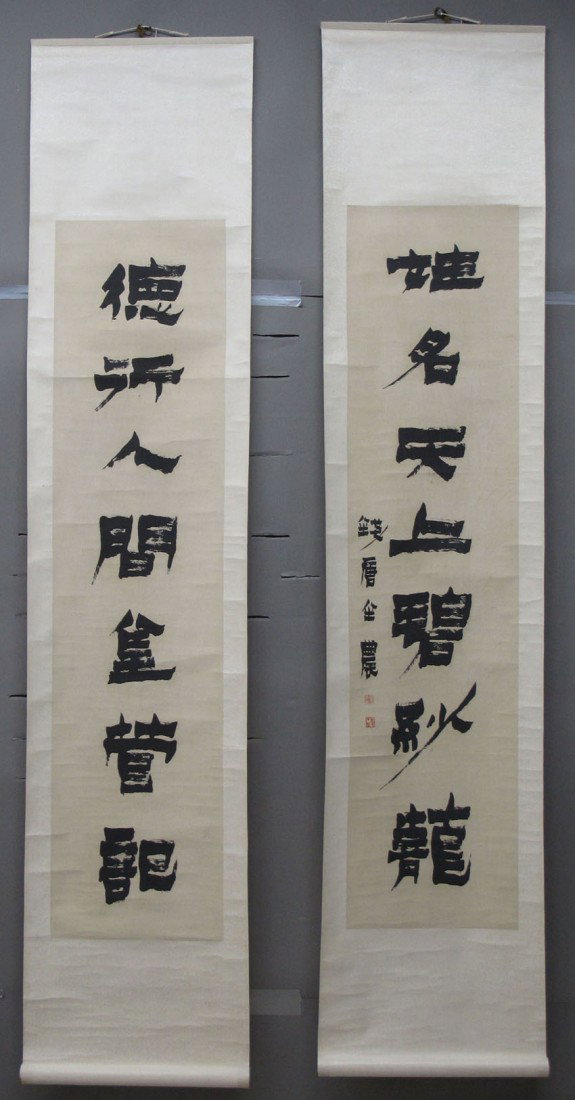 德行人間金管記
姓名天上碧紗籠
錢唐金農